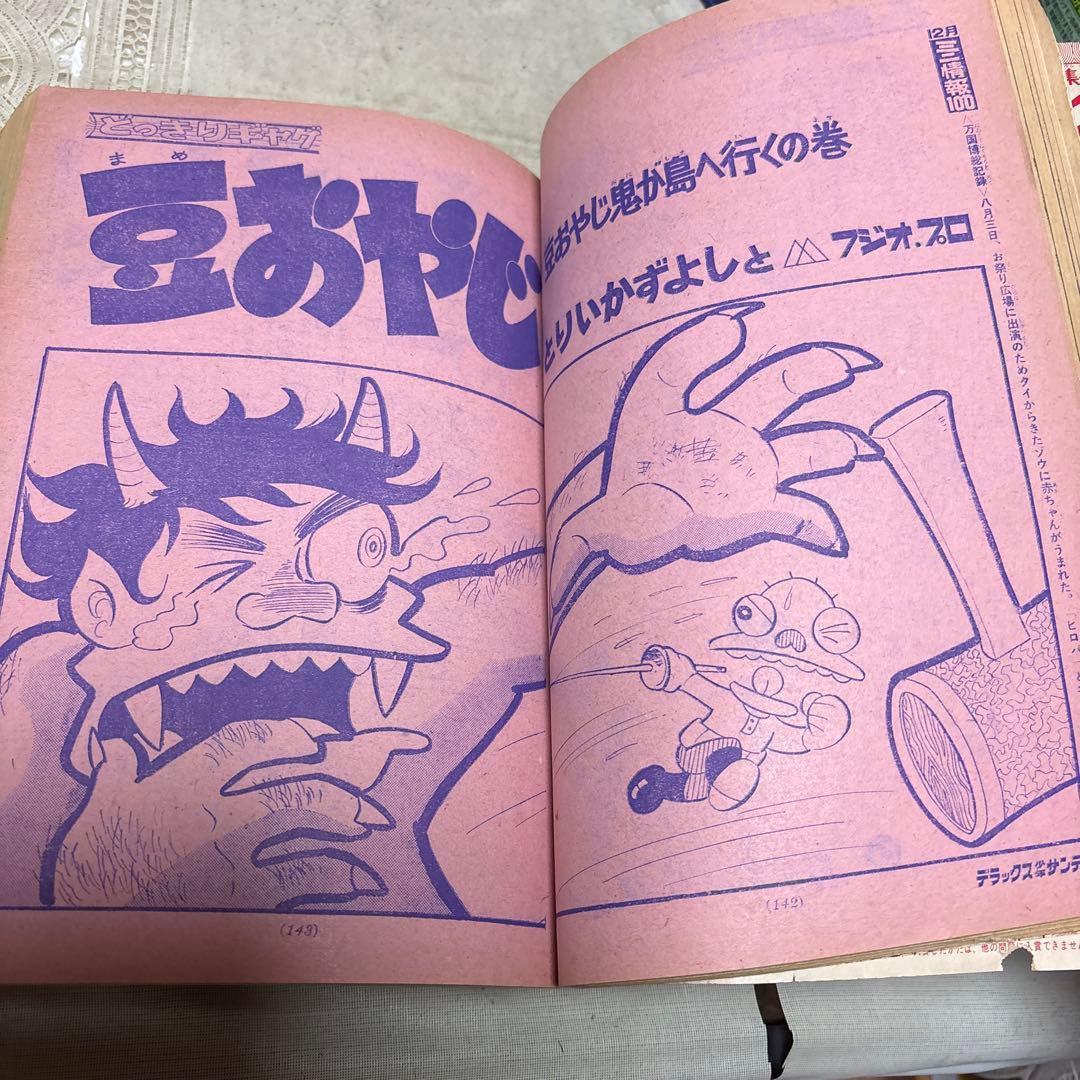 12月
ミニ情報100
〈万国博総記録〉八月三日、お祭り広場に出演のためタイからきたゾウに赤ちゃんがうまれた。
豆おやじ鬼が島へ行くの巻
とりいかずよしと フジオ・プロ
どっきりギャグ
まめ
豆おやじ
デラックス少年サンデ
(142)
(143)